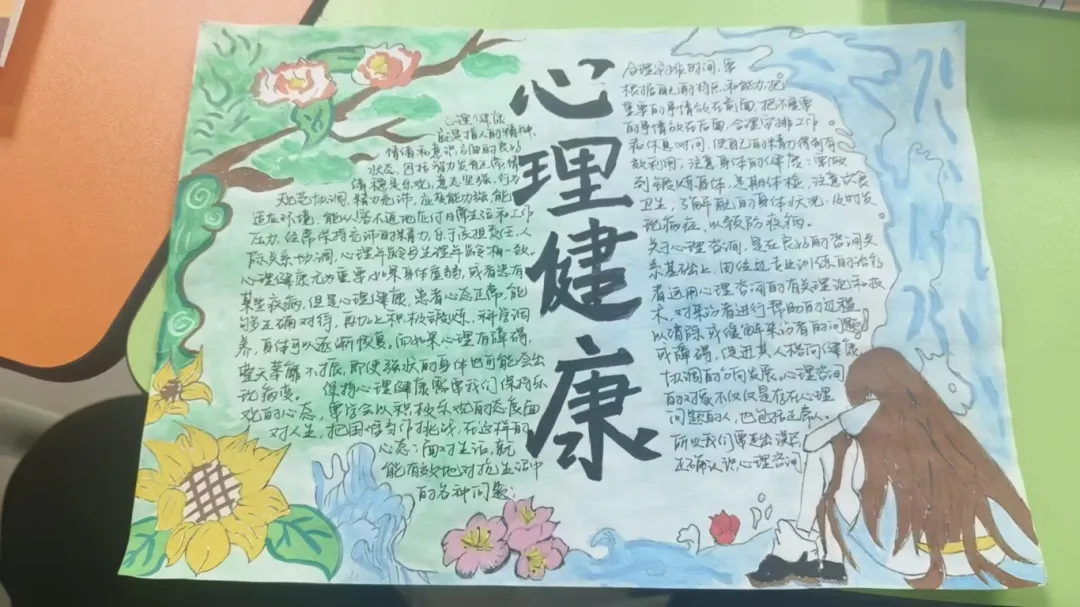 心理健康
心理健康
应是指人的精神、
情绪和意识方面的良好
状态，包括智力发育正常，情
绪稳定乐观，意志坚强，行为
规范协调，精力充沛，应变能力强，能
适应环境，能从容不迫地应付日常生活和工作
压力，经常保持充沛的精力，乐于承担责任，人
际关系协调，心理年龄与生理年龄相一致。
心理健康尤为重要，如果身体虚弱，或者患有
某些疾病，但是心理健康，患者心态正常，能
够正确对待，再加上积极锻炼，科学调
养，身体可以逐渐恢复，而如果心理有障碍，
整天萎靡不振，即使强壮的身体也可能会出
现病变。保持心理健康需要我们保持乐
观的心态，要学会以积极乐观的态度面
对人生，把困难当作挑战，在这样的
心态下面对生活，就
能有效地对抗生活中
的各种问题；
合理安排时间，要
根据自己的特点和能力，把
重要的事情放在前面，把不重要
的事情放在后面，合理安排工作
和休息时间，使自己的精力得到有
效利用；注意身体的保健：要做
到锻炼身体，定期体检，注意饮食
卫生，了解自己的身体状况，及时发
现病症，以预防疾病。
关于心理咨询，是在良好的咨询关
系基础上，由经过专业训练的治疗
者运用心理咨询的有关理论和技
术，对来访者进行帮助的过程，
以消除或缓解来访者的问题
或障碍，促进其人格向健康、
协调的方向发展。心理咨询
的对象不仅仅是存在心理
问题的人，也包括正常人。
所以我们要走出误区
正确认识心理咨询